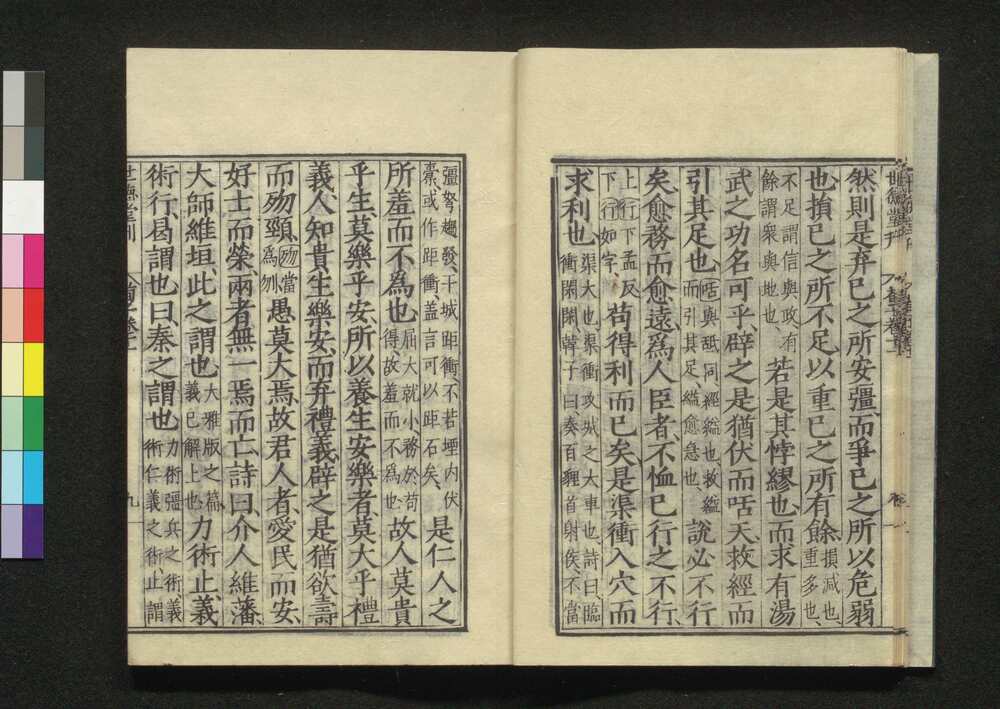 然則是弃已之所安彊而爭已之所以危弱
也損已之所不足以重已之所有餘損減也重多也
不足謂信與政有餘謂衆與地也若是其悖繆也而求有湯
武之功名可乎辟之是猶伏而咶天救經而
引其足也咶與舐同經縊也救縊而引其足縊愈急也說必不行
矣愈務而愈遠爲人臣者不恤已行之不行
上行下孟反下行如字苟得利而已矣是渠衝入穴而
求利也渠大也渠衝攻城之大車也詩曰臨衝閑閑韓子曰奏百貍首射侯不當
彊弩趨發干城距衝不若堙内伏橐或作距衝蓋言可以距石矣是仁人之
所羞而不爲也屈大就小務於苟得故羞而不爲也故人莫貴
乎生莫樂乎安所以養生安樂者莫大乎禮
義人知貴生樂安而弃禮義辟之是猶欲壽
而歾頸歾當爲刎愚莫大焉故君人者愛民而安
好士而榮兩者無一焉而亡詩曰介人維藩
大師維垣此之謂也大雅版之篇義已解上也力術止義
術行曷謂也曰秦之謂也力術彊兵之術義術仁義之術止謂
世德堂刊
九